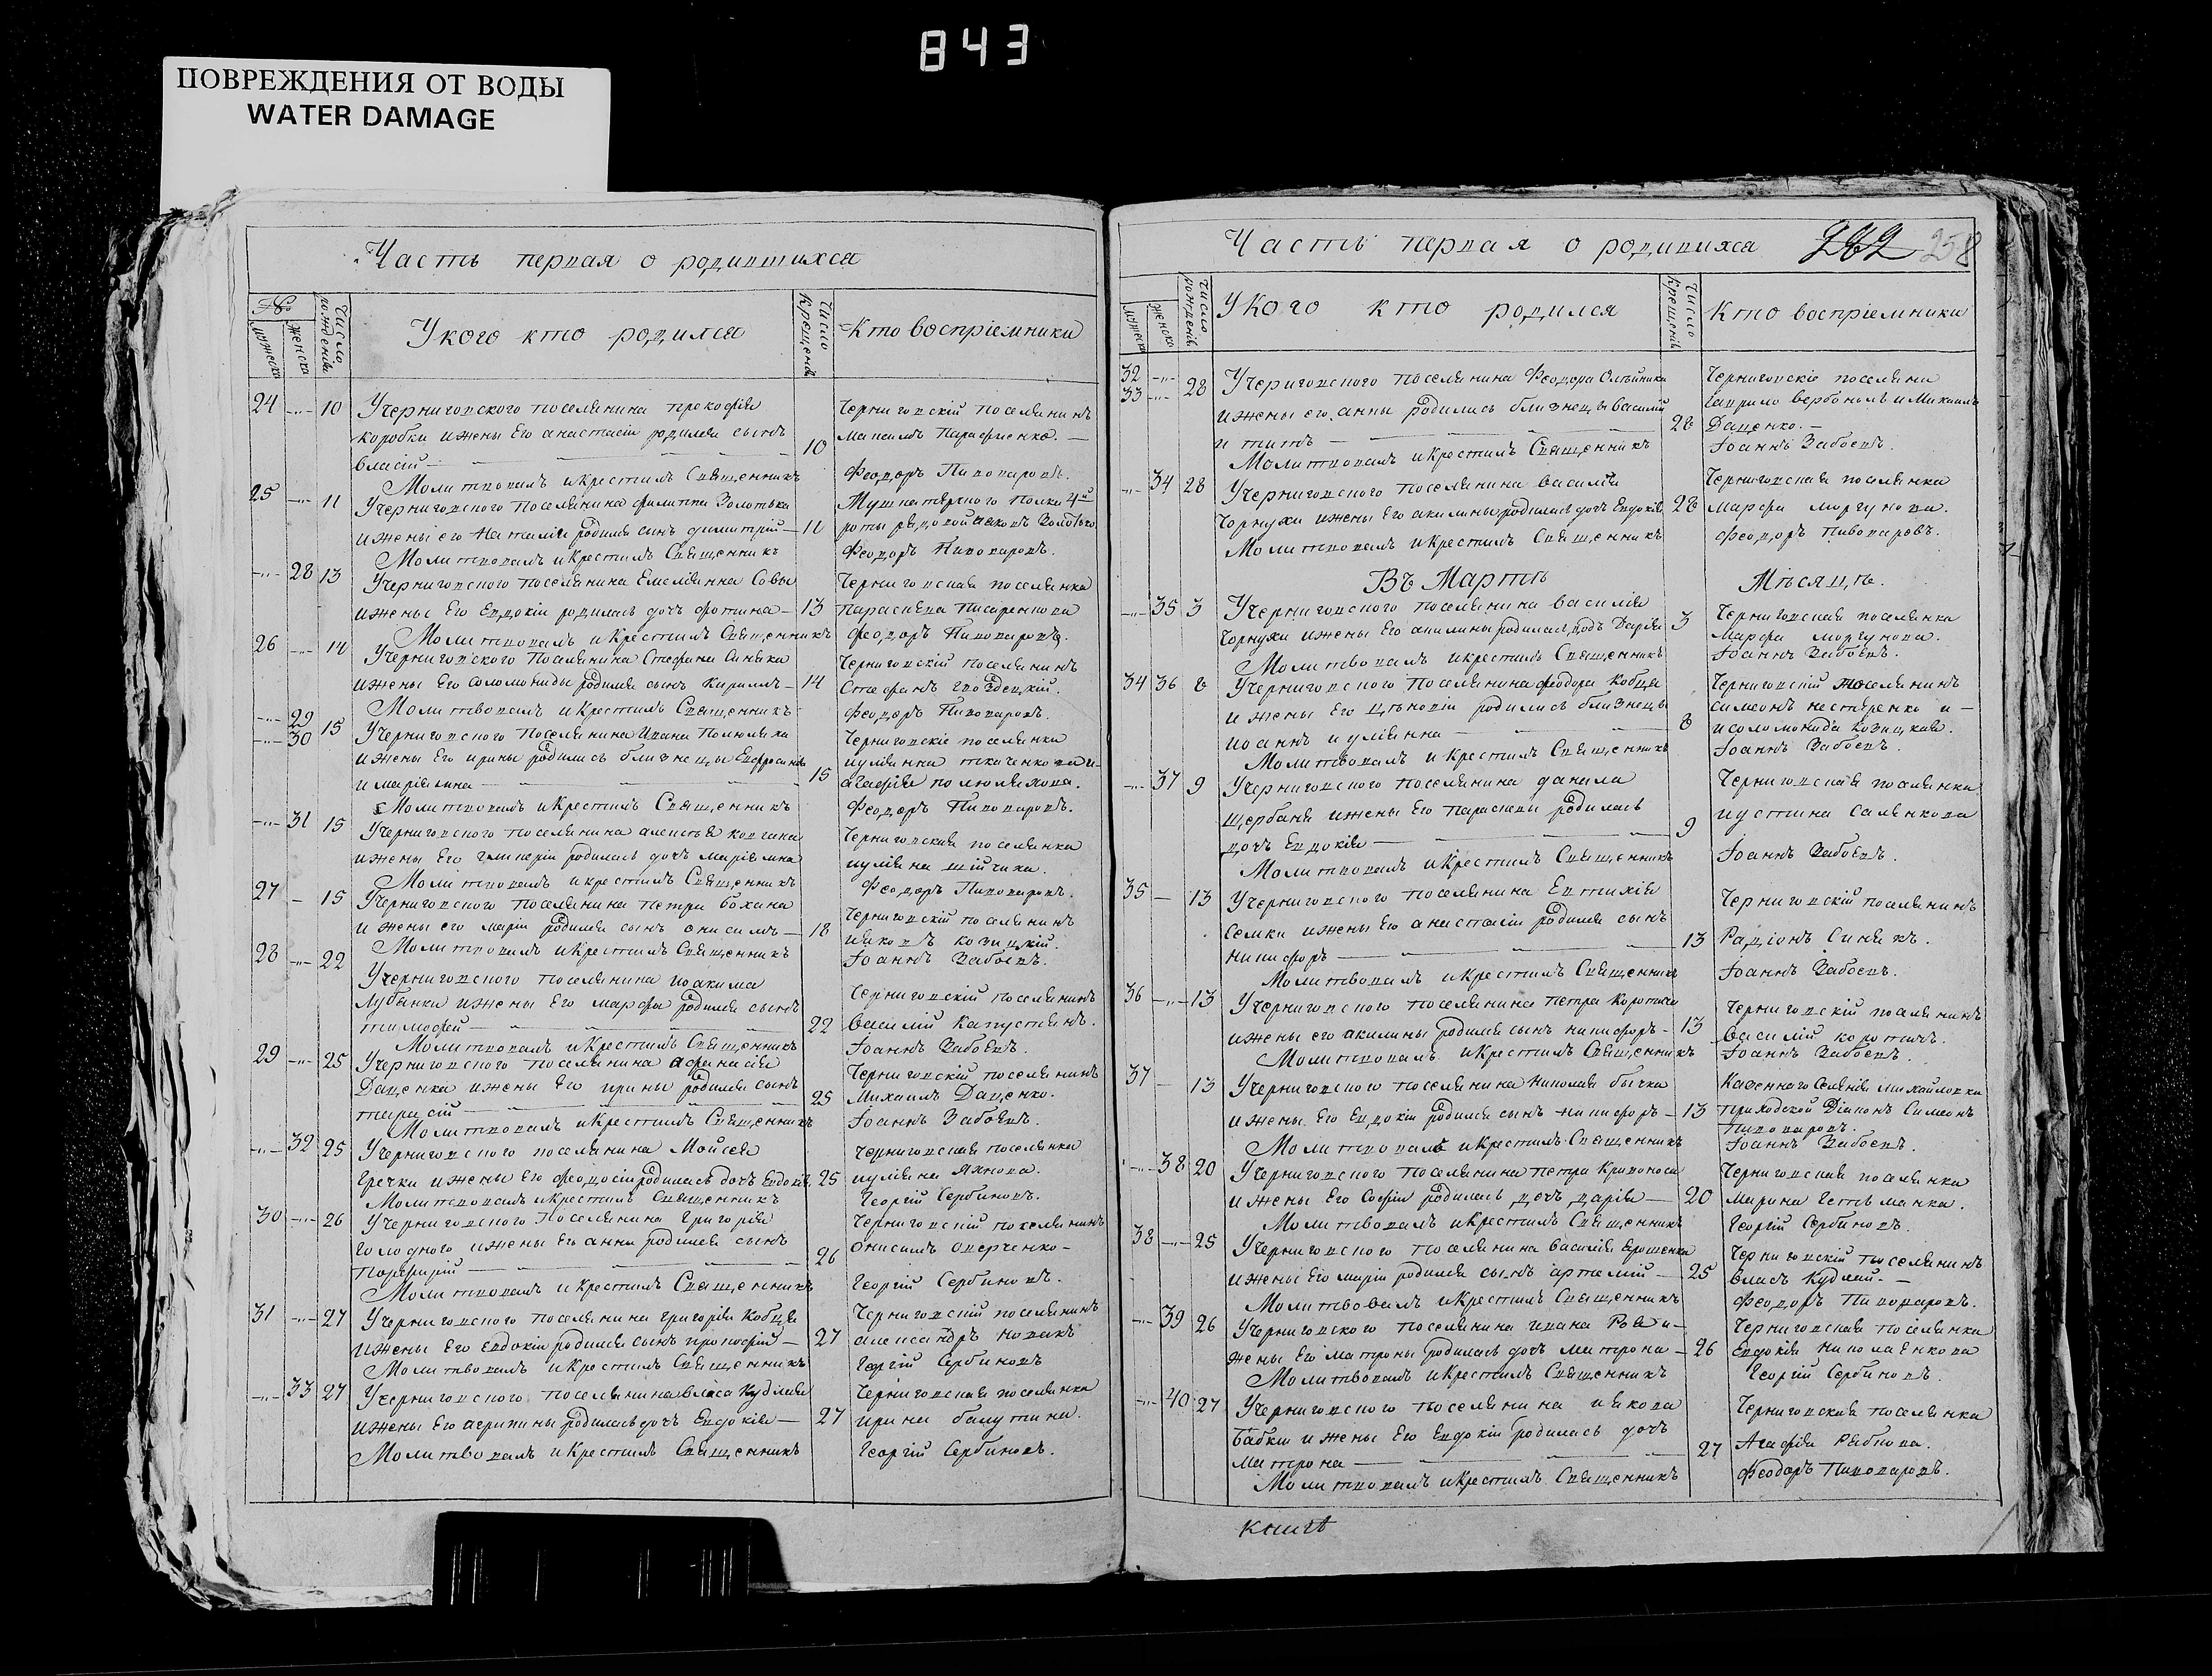 843
ПОВРЕЖДЕНИЯ ОТ ВОДЫ
WATER DAMAGE
Часть первая о родившихся
№
мужеска
женска
Число рожденія
У кого кто родился
Число Крещенія
Кто воспріемники
24 10 У Черниговского поселянина прокофія
Коробки и жены Его анастасіи родился сынъ
власій 10
Черниговскій поселянинъ
Молитвовалъ и Крестилъ Священникъ
Феодоръ Пивоваровъ.
25 11 У Черниговского поселянина филиппа Золотька
и жены его Наталіи родился сынъ димитрій 11
Мушкатерского полка 4й
роты рядовой
Молитвовалъ и Крестилъ Священникъ
Феодоръ Пивоваровъ.
28 13 У Черниговского поселянина Емеліяна Совы
и жены Его Евдокіи родилась дочь фотина 13
Черниговская поселянка
параскева писаренкова
Молитвовалъ и Крестилъ Священникъ
Феодоръ Пивоваровъ.
26 14 У Черниговского поселянина Стефана Синяка
и жены Его соломониды родился сынъ Кириллъ 14
Черниговскій поселянинъ
Стефанъ гвоздецкій.
Молитвовалъ и Крестилъ Священникъ
Феодоръ Пивоваровъ.
29
30 15 У Черниговского поселянина Ивана Полюляха
и жены Его ирины родились близнецы Евфросинія
и маріямна 15
Черниговскіе поселянки
иулянна ткаченкова и
агафія полюляхова.
Молитвовалъ и Крестилъ Священникъ
Феодоръ Пивоваровъ.
31 15 У Черниговского поселянина алексея
и жены Его гликеріи родилась дочь маріямна
Черниговская поселянка
Молитвовалъ и крестилъ Священникъ
Феодоръ Пивоваровъ.
27 15 У Черниговского поселянина петра бохана
и жены его маріи родился сынъ онисимъ 18
Черниговскій поселянинъ
иаковъ козицкій.
Молитвовалъ и Крестилъ Священникъ
Іоаннъ Забоевъ.
28 22 У Черниговского поселянина иоакима
Лубянки и жены Его марфы родился сынъ
тимофей 22
Черниговскій поселянинъ
василій Капустянъ.
Молитвовалъ и Крестилъ Священникъ
Іоаннъ Забоевъ.
29 25 У Черниговского поселянина афанасія
Даценка и жены Его ирины родился сынъ
тарасій 25
Черниговскій поселянинъ
Михаилъ Даценко.
Молитвовалъ и Крестилъ Священникъ
Іоаннъ Забоевъ.
32 25 У Черниговского поселянина Мойсея
Гречки и жены Его феодосіи родилась дочь Евдокія 25
Черниговская поселянка
иуляна Яхнова.
Молитвовалъ и Крестилъ Священникъ
Георгій Сербиновъ.
30 26 У Черниговского Поселянина григорія
Голодного и жены Его анны родился сынъ
Порфирій 26
Черниговскій поселянинъ
онисимъ оверченко
Молитвовалъ и Крестилъ Священникъ
Георгій Сербиновъ.
31 27 У Черниговского поселянина григорія Кобца
и жены Его Евдокіи родился сынъ прокофій 27
Черниговскій поселянинъ
александръ новакъ
Молитвовалъ и Крестилъ Священникъ
Георгій Сербиновъ
33 27 У Черниговского поселянина власа Кудлая
и жены Его агрипины родилась дочь Евдокія 27
Черниговская поселянка
ирина балутина.
Молитвовалъ и Крестилъ Священникъ
Георгій Сербиновъ.
Часть первая о родившихся 262 258
мужеска
женска
Число рожденія
У Кого кто родился
Число Крещенія
Кто воспріемники
32
33 28 У Черниговского поселянина Феодора Олейника
и жены его анны родились близнецы василій
и титъ 28
Черниговскіе поселяни
гаврило вербовый и Михаилъ
Даценко.
Молитвовалъ и Крестилъ Священникъ
Іоаннъ Забоевъ.
34 28 У Черниговского поселянина василія
Чорнухи и жены Его акилины родилась дочь Евдокія 28
Черниговская поселянка
марфа моргунова.
Молитвовалъ и Крестилъ Священникъ
Феодоръ Пивоваровъ.
Въ Мартѣ Мѣсяцѣ.
35 3 У Черниговского поселянина василія
Чорнухи и жены Его акилины родилась дочь Дарія 3
Черниговская поселянка
марфа моргунова.
Молитвовалъ и крестилъ Священникъ
Іоаннъ Забоевъ.
34 36 8 У Черниговского поселянина феодора Кобца
и жены Его родились близнецы
иоаннъ и улянна 8
Черниговскій поселянинъ
симеонъ нестеренко и
и соломонида козицкая.
Молитвовалъ и Крестилъ Священникъ
Іоаннъ Забоевъ.
37 9 У Черниговского поселянина данила
Щербаня и жены Его параскевы родилась
дочь Евдокія 9
Черниговская поселянка
иустина саленкова
Молитвовалъ и Крестилъ Священникъ
Іоаннъ Забоевъ.
35 13 У Черниговского поселянина Евтихія
Семки и жены Его анастасіи родился сынъ
никифоръ 13
Черниговскій поселянинъ
Радіонъ Синякъ.
Молитвовалъ и Крестилъ Священникъ
Іоаннъ Забоевъ.
36 13 У Черниговского поселянина петра Коротича
и жены его акилины родился сынъ никифоръ 13
Черниговскій поселянинъ
василій коротичъ.
Молитвовалъ и Крестилъ Священникъ
Іоаннъ Забоевъ.
37 13 У Черниговского поселянина николая бычка
и жены Его Евдокіи родился сынъ никифоръ 13
Казенного Селенія михайловки
приходской Діаконъ Симеонъ
Пивоваровъ.
Молитвовалъ и Крестилъ Священникъ
Іоаннъ Забоевъ.
38 20 У Черниговского поселянина петра Кривоноса
и жены Его Софіи родилась дочь дарія 20
Черниговская поселянка
марина гетьманка.
Молитвовалъ и Крестилъ Священникъ
Георгій Сербиновъ.
38 25 У Черниговского поселянина василія Ерошенка
и жены Его маріи родился сынъ артемій 25
Черниговскій поселянинъ
власъ Кудлай.
Молитвовалъ и Крестилъ Священникъ
Феодоръ Пивоваровъ.
39 26 У Черниговского поселянина ивана и
жены Его матроны родилась дочь матрона 26
Черниговская поселянка
Евдокія николаенкова
Молитвовалъ и Крестилъ Священникъ
Георгій Сербиновъ.
40 27 У Черниговского поселянина иакова
бабки и жены Его Евдокіи родилась дочь
матрона 27
Черниговская поселянка
Агафія Рябкова.
Молитвовалъ и Крестилъ Священникъ
Феодоръ Пивоваровъ.